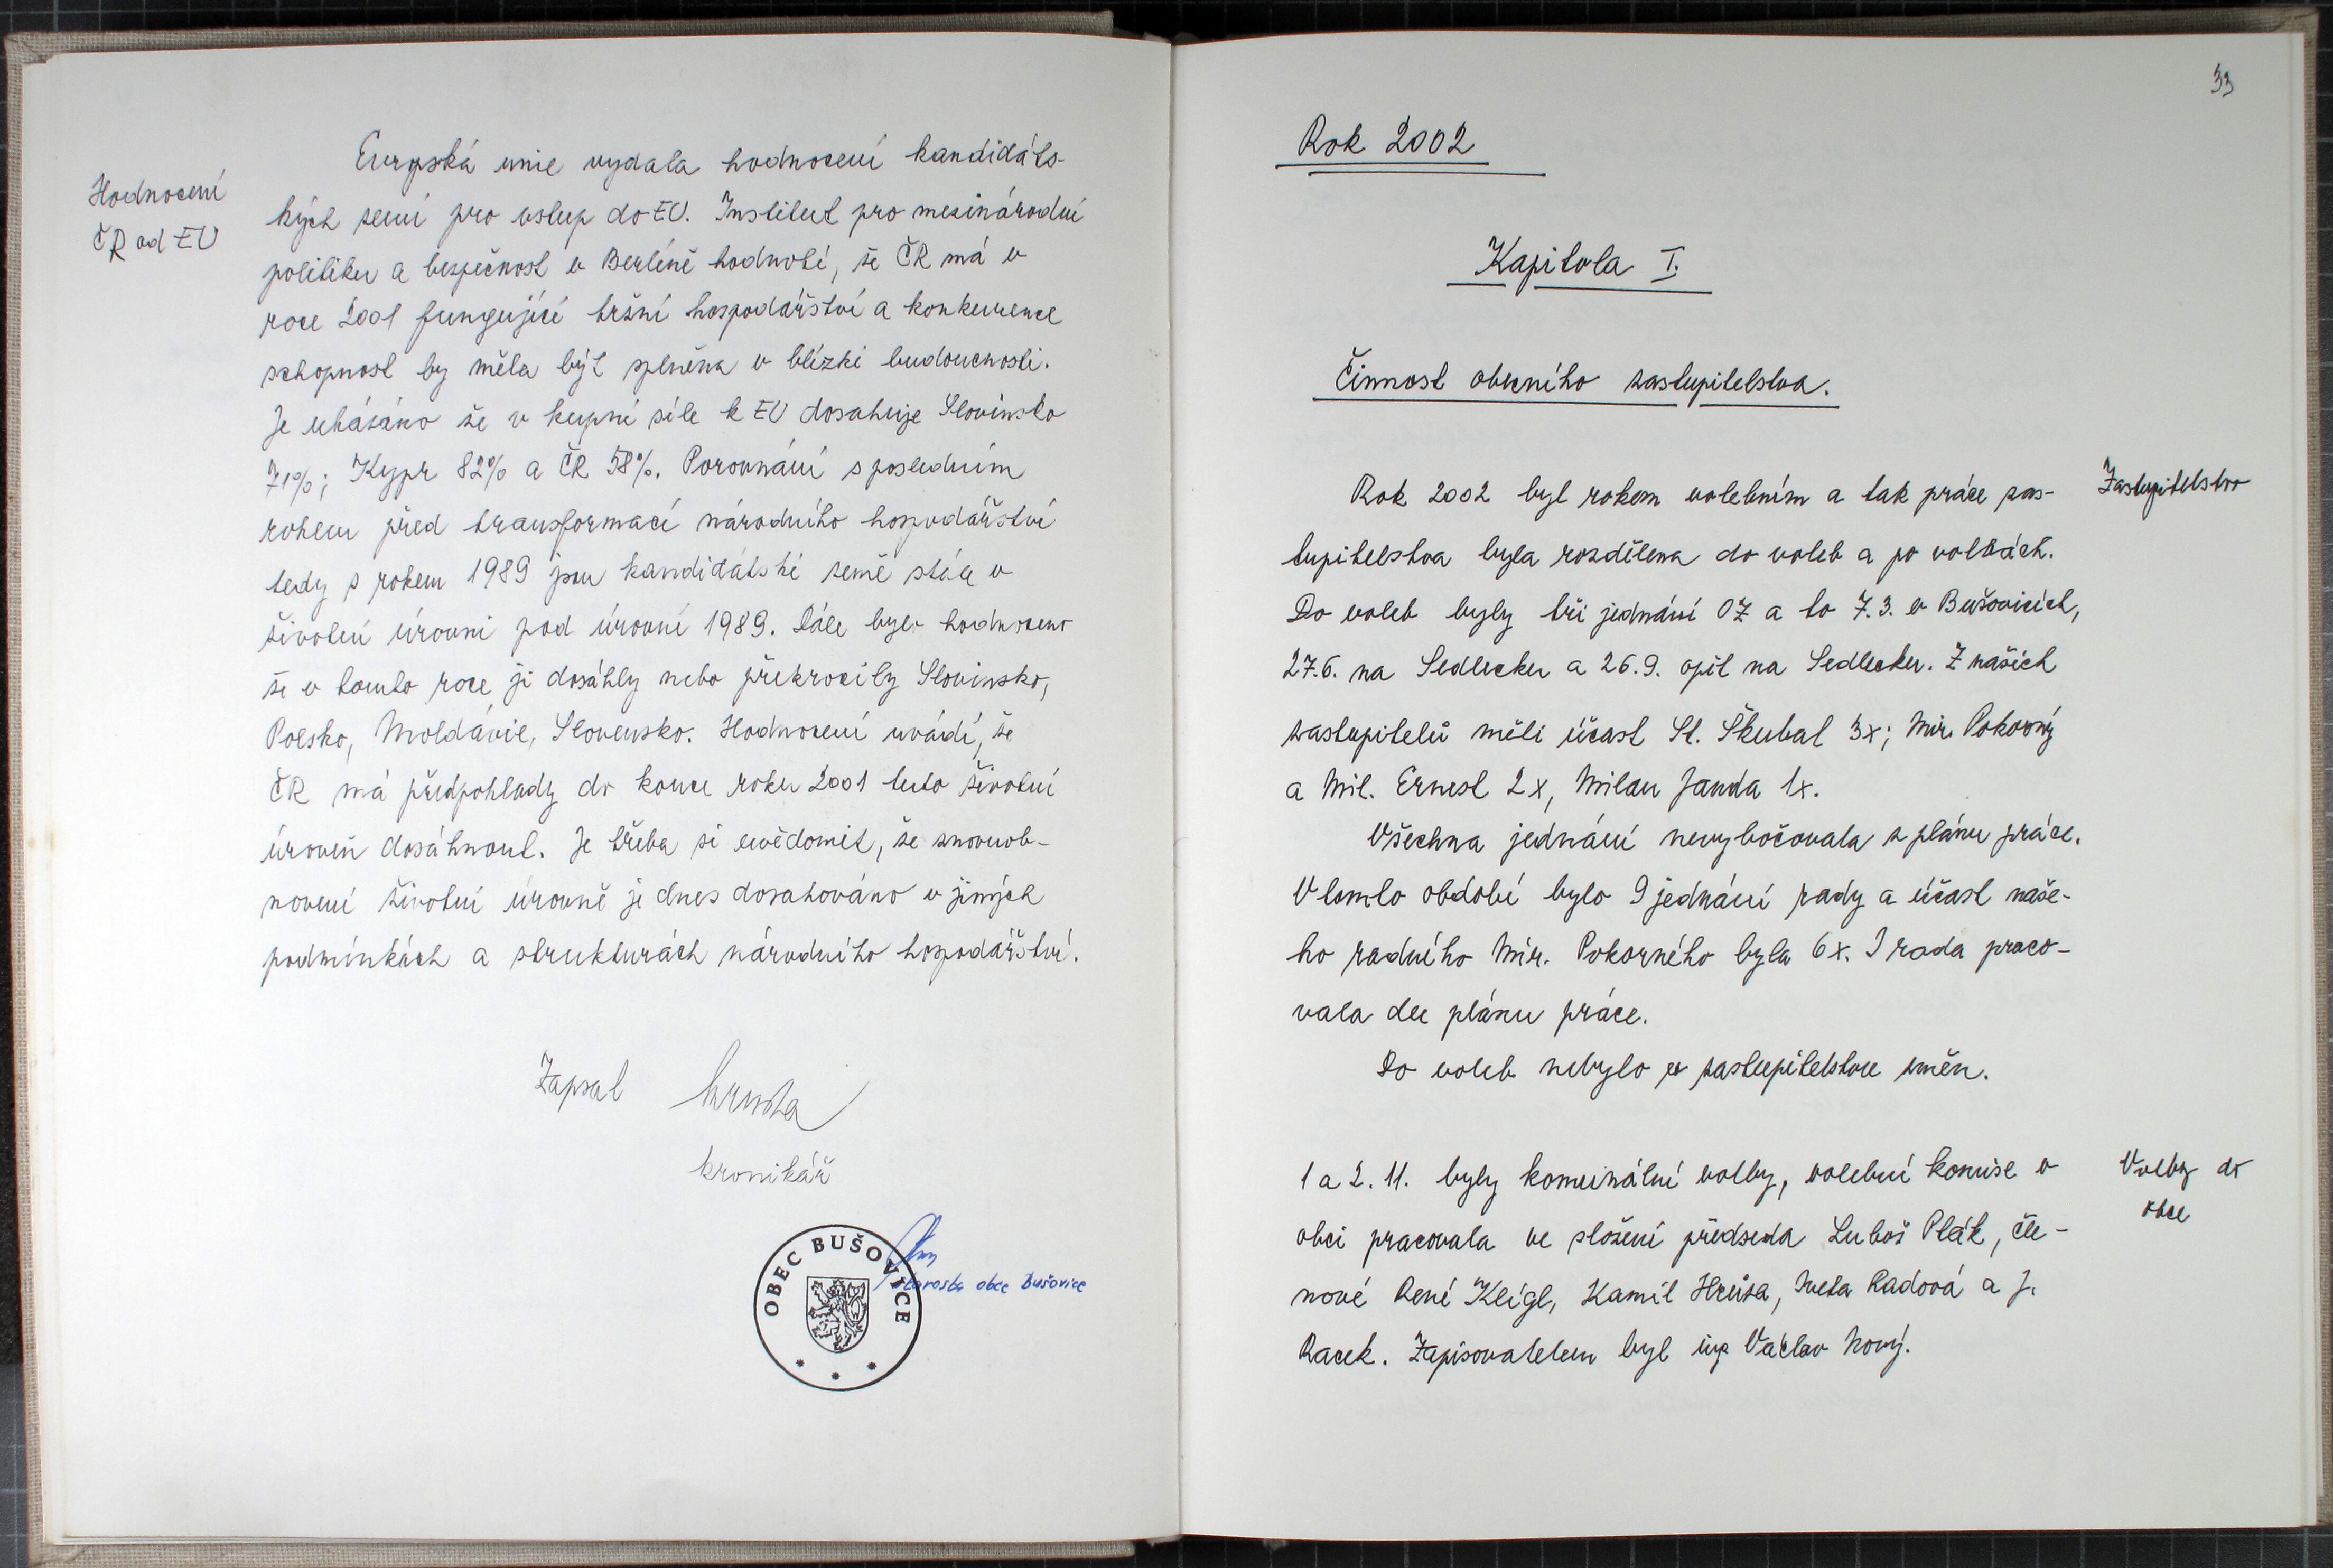 Hodnocení
ČR od EU
Evropská unie vydala hodnocení kandidáts-
kých zemí pro vstup do EU. Institut pro mezinárodní
politiku a bezpečnost v Berlíně hodnotí, že ČR má v
roce 2001 fungující tržní hospodářství a konkurence
schopnost by měla být splněna v blízké budoucnosti.
Je ukázáno že v kupní síle k EU dosahuje Slovinsko
71%; Kypr 82% a ČR 58%. Porovnání s posledním
rokem před transformací národního hospodářství
tedy s rokem 1989 jsou kandidátské země stále v
životní úrovni pod úrovní 1989. Dále bylo hodnoceno
že v tomto roce ji dosáhly nebo překročily Slovinsko,
Polsko, Moldávie, Slovensko. Hodnocení uvádí, že
ČR má předpohlady do konce roku 2001 tuto životní
úroveň dosáhnout. Je třeba si uvědomit, že znovuob-
novení životní úrovně je dnes dosahováno v jiných
podmínkách a strukturách národního hospodářství.
Zapsal
kronikář
starosta obce Bušovice
OBEC BUŠOVICE
33
Rok 2002
Kapitola I.
Činnost obecního zastupitelstva.
Zastupitelstvo
Rok 2002 byl rokem volebním a tak práce zas-
tupitelstva byla rozdělena do voleb a po volbách.
Do voleb byly tři jednání OZ a to 7.3. v Bušovicích,
27.6. na Sedlecku a 26.9. opět na Sedlecku. Z našich
zastupitelů měli účast St. Škubal 3x; Mir. Pokorný
a Mil. Ernest 2x, Milan Janda 1x.
Všechna jednání nevybočovala z plánu práce.
V tomto období bylo 9 jednání rady a účast naše-
ho radního Mir. Pokorného byla 6x. I rada praco-
vala dle plánu práce.
Do voleb nebylo v zastupitelstvu změn.
Volby do
obce
1 a 2. 11. byly komunální volby, volební komise v
obci pracovala ve složení předseda Luboš Pták, čle-
nové René Kleigl, Kamil Hrůša, Iveta Radová a J.
Racek. Zapisovatelem byl ing Václav Nový.